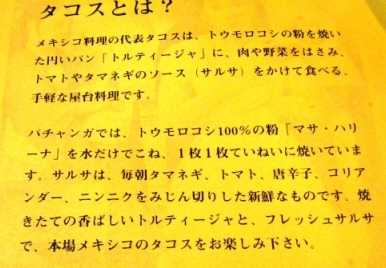 タコスとは？
メキシコ料理の代表タコスは、トウモロコシの粉を焼い
た円いパン「トルティージャ」に、肉や野菜をはさみ、
トマトやタマネギのソース（サルサ）をかけて食べる、
手軽な屋台料理です。
パチャンガでは、トウモロコシ100%の粉「マサ・ハリ
ーナ」を水だけでこね、1枚1枚ていねいに焼いていま
す。サルサは、毎朝タマネギ、トマト、唐辛子、コリア
ンダー、ニンニクをみじん切りした新鮮なものです。焼
きたての香ばしいトルティージャと、フレッシュサルサ
で、本場メキシコのタコスをお楽しみ下さい。